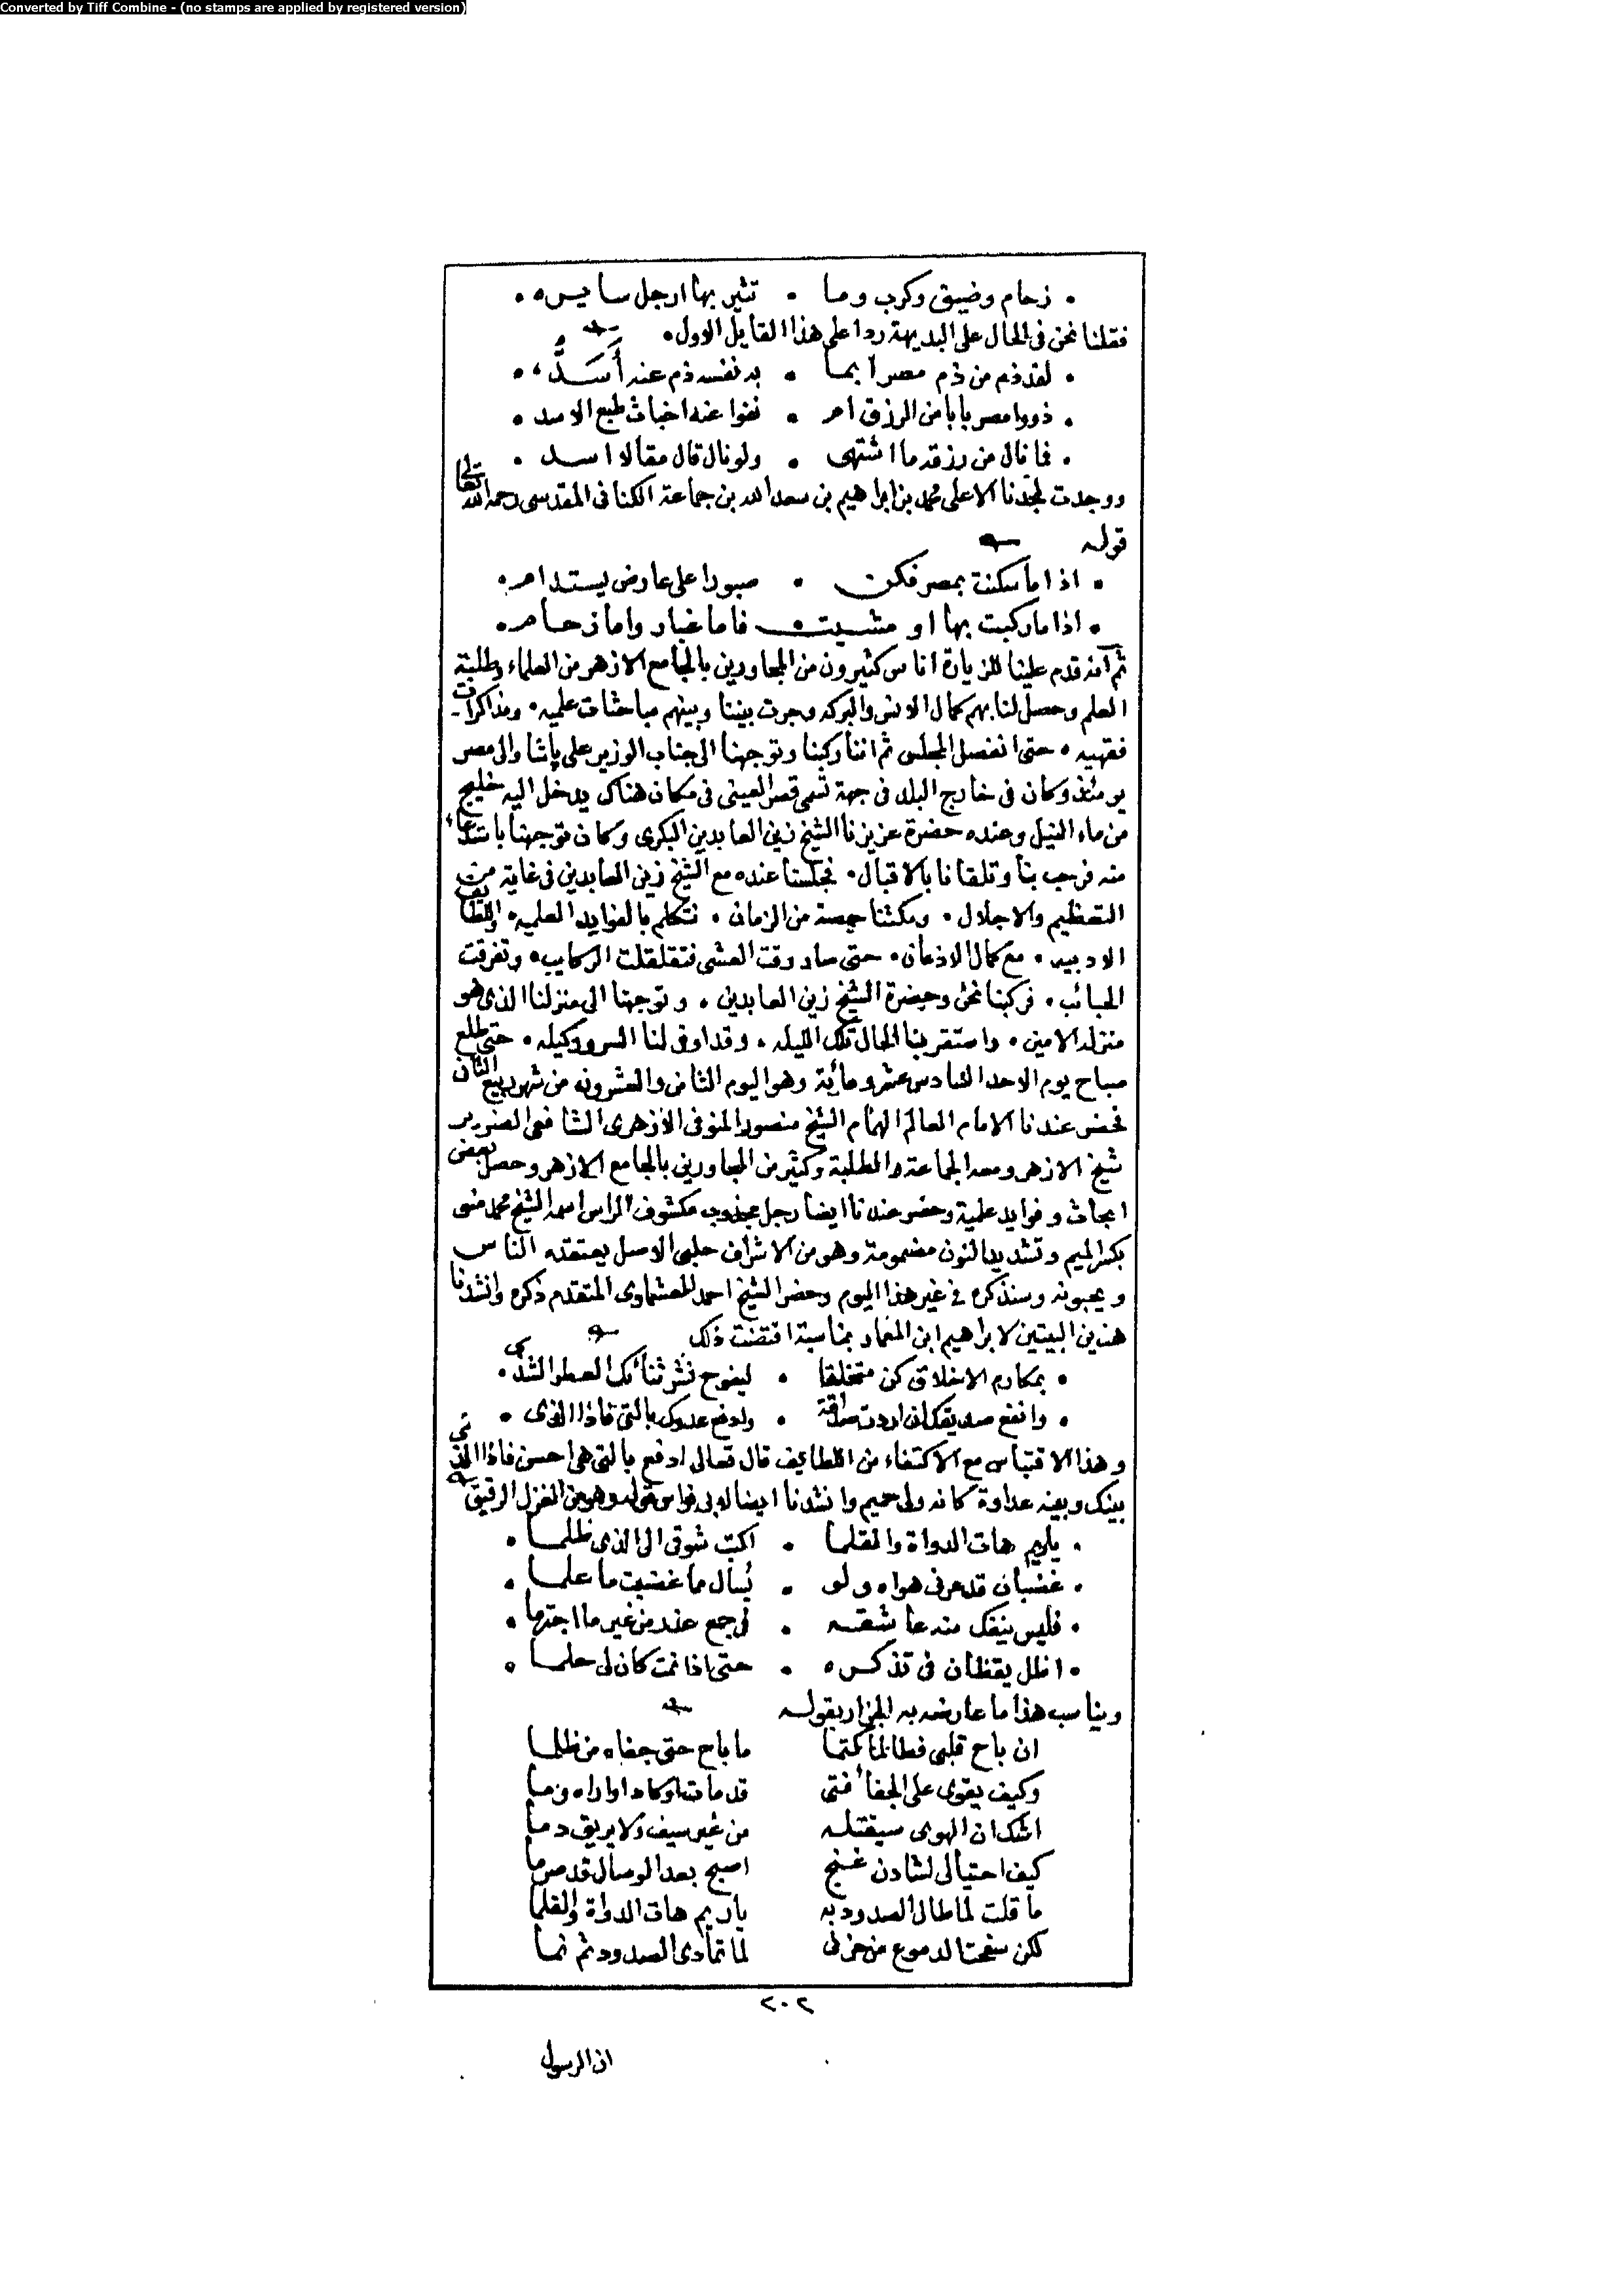 Converted by Tiff Combine - (no stamps are applied by registered version)
• زحام وضيق وكرب وما • تثير بها ارجل سايره •
فقلنا نحن في الحال على البديهة ردا على هذا القايل الاول •
• لقد ذم من ذم مصرا بما • به نفسه ذم عند أَسَدَّ •
• ذووا مصر بابا من الرزق ام • نفوا عنه اخباث طبع الاسد •
• فما نال من رزقه ما اشتهى • ولو نال قال مقالا اسد •
ووجدت لجدنا الاعلى محمد بن ابراهيم بن سعد الله بن جماعة الكناني المقدسي رحمه الله تعالى
قوله
• اذا ما سكنت بمصر فكن • صبورا على عارض يستدام •
• اذا ما ركبت بها او مشيت • فاما غبار واما زحام •
ثم انه قدم علينا للزيارة اناس كثيرون من المجاورين بالجامع الازهر من العلماء وطلبة
العلم وحصل لنا بهم كمال الانس والبركه وجرت بيننا وبينهم مباحثات علميه • ومذاكرات
فقهيه • حتى انفصل المجلس ثم اننا ركبنا وتوجهنا الى جناب الوزير علي پاشا والى مصر
يومئذ وكان في خارج البلد في جهة تسمى قصر العيني في مكان هناك يدخل اليه خليج
من ماء النيل وعنده حضرة عزيزنا الشيخ زين العابدين البكري وكان توجهنا باستدعاء
منه فرحب بنا وتلقانا بالاقبال • فجلسنا عنده مع الشيخ زين العابدين في غاية من
التعظيم والاجلال • ومكثنا حصة من الزمان • نتكلم بالفوايد العلميه • واللطايف
الادبيه • مع كمال الاذعان • حتى صار وقت العشي فتقلقلت الركايب • وتفرقت
الحبائب • فركبنا نحن وحضرة الشيخ زين العابدين • وتوجهنا الى منزلنا الذي هو
منزله الامين • واستقر بنا الحال تلك الليله • وقد اوفى لنا السرور كيله • حتى طلع
صباح يوم الاحد السادس عشر ومائة وهو اليوم الثامن والعشرون من شهر ربيع الثان
فحضر عندنا الامام العالم الهمام الشيخ منصور المنوفى الازهري الشافعي الضرير
شيخ الازهر ومعه الجماعة والطلبة وكثير من المجاورين بالجامع الازهر وحصل بعض
ابحاث وفوايد علمية وحضر عندنا ايضا رجل مجذوب مكشوف الراس اسمه الشيخ محمد منو
بكسر الميم وتشديد النون مضمومة وهو من الاشراف حلبي الاصل يعتقده الناس
ويحبونه وسنذكره في غير هذا اليوم وحضر الشيخ احمد العشماوي المتقدم ذكره وانشدنا
هذين البيتين لابراهيم ابن المعمار بمناسبة اقتضت ذلك
• بمكارم الاخلاق كن متخلقا • ليفوح نشر ثنائك العطر الشذي •
• وانفع صديقك ان اردت صداقة • وادفع عدوك بالتي فاذا الذي •
وهذا الاقتباس مع الاكتفاء من اللطايف قال تعالى ادفع بالتي هي احسن فاذا الذي
بينك وبينه عداوة كانه ولي حميم وانشدنا ايضا لابي نواس قوله وهو من الغزل الرقيق
• ياريم هات الدواة والقلما • اكتب شوقي الى الذي ظلما •
• غضبان قد عزني هواه ولو • يُسال مما غضبت ما علما •
• فليس ينفك منه عاشقه • في جمع عذر من غير ما اجترما •
• اظل يقظان في تذكره • حتى اذا نمت كان لي حلما •
ويناسب هذا ما عارضه به الجزار بقوله
ان باح قلبي فطالما كتما ما باح حتى جفاه من ظلما
وكيف يقوى على الجفاء فتى قد مات او كاد او اراه وما
اشك ان الهوى سيقتله من غير سيف ولا يريق دما
كيف احتيالي لشادن غنج اصبح بعد الوصال قد صرما
ما قلت لما طال الصدود به ياريم هات الدواة والقلما
لكن سفحت الدموع من حزني لما تمادى الصدود ثم نما
٢٠٢
ان الرسول